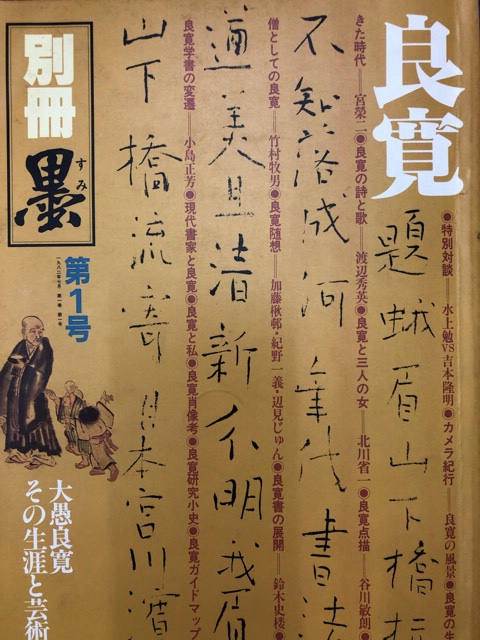 良寛
●特別対談――水上勉VS吉本隆明●カメラ紀行――良寛の風景●良寛の生
題蛾眉山下橋
きた時代――宮榮二●良寛の詩と歌――渡辺秀英●良寛と三人の女――北川省一●良寛点描――谷川敏朗●
不知落成何年代書法
僧としての良寛――竹村牧男●良寛随想――加藤楸邨・紀野一義・辺見じゅん●良寛書の展開――鈴木史楼●
遒美且清新分明我眉
良寛学書の変遷――小島正芳●現代書家と良寛●良寛と私●良寛肖像考●良寛研究小史●良寛ガイドマップ
山下橋流寄日本宮川濱
別冊
墨
すみ
第1号
一九八二年七月 第一巻 第一号
大愚良寛
その生涯と芸術